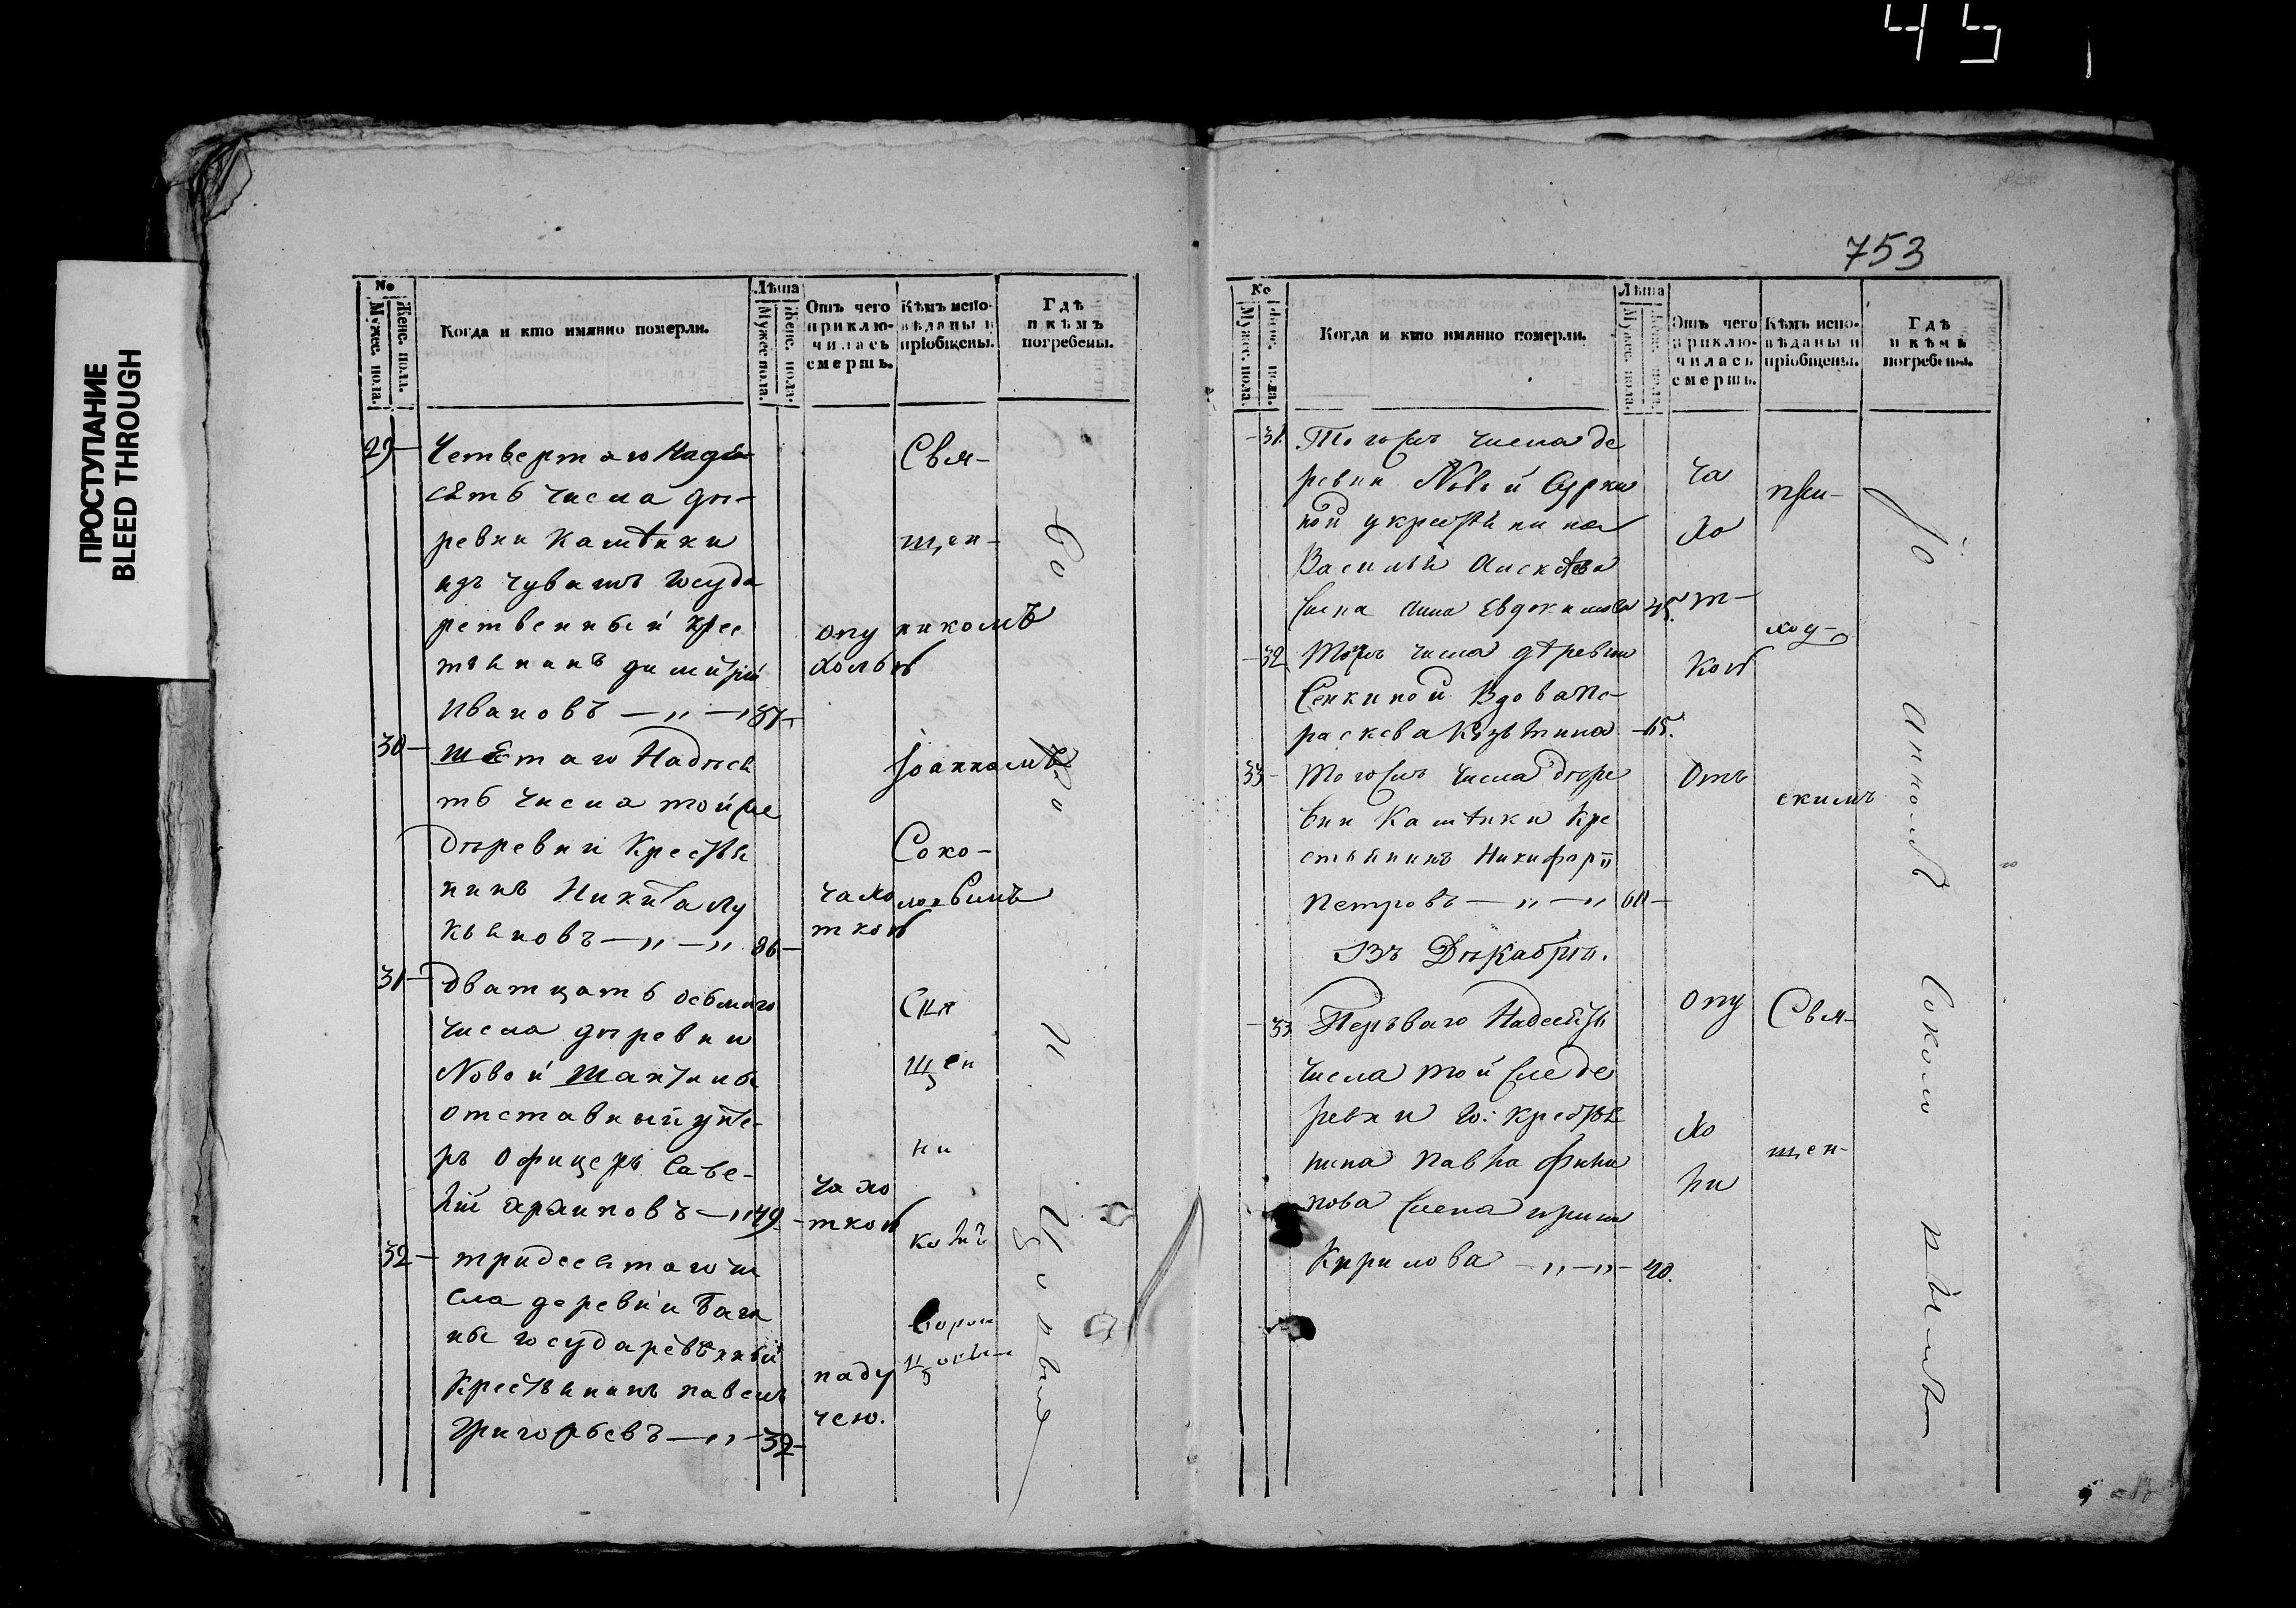 ПРОСТУПАНИЕ
BLEED THROUGH
753
№
Мужес. пола.
Женс. пола.
Когда и кто имянно померли.
Лѣта
Мужес пола.
Женс. пола.
Отъ чего
приклю-
чилась
смерть.
Кѣмъ испо-
вѣданы и
пріобщены.
Гдѣ
и кѣмъ
погребены.
29
Четвертаго Надеся
сять числа де-
ревни Каштики
изъ чувашъ Государ
рственный крес
тьянинъ Димитрій
Ивановъ
опу
холью
Свя-
щен-
никомъ
30
шестаго Надеся
ть числа той же
Деревни Крестья
нинъ Никита Лу
кьяновъ 86
чахо
ткой
Іоанномъ
Соко-
ловымъ
31
Дватцать осьмаго
числа деревни
Новой
отставный унте-
ръ офицеръ Саве-
лій Архиповъ 49
чахо
ткой
Свя
щен
ни
комъ
32
тридесятаго чи
сла деревни
ны государственный
Крестьянинъ Павелъ
Григорьевъ 32
паду
чею.
№
Мужес. пола.
Женс. пола.
Когда и кто имянно померли.
Лѣта
Мужес. пола.
Женс. пола.
Отъ чего
приклю-
чилась
смерть.
Кѣмъ испо-
вѣданы и
пріобщены.
Гдѣ
и кѣмъ
погребены.
31.
Тогожъ числа де
ревни Новой Сурки
ной у крестьянина
Василья Алексѣева
жена Анна Евдокимова 45.
ча
хо
т-
кой
при-
ход-
скимъ
32
Тогожъ числа деревни
Сенкиной Вдова Па-
раскева Кузьмина 65.
33
Тогожъ числа дере
вни Каштики Кре
стьянинъ Никифоръ
Петровъ 60
Отъ
опу
хо
ли
Въ Декабрѣ.
33
Перваго Надесять
числа той же де
ревни Го: крестья
нина Павла Фили
пова жена Ирина
Кирилова 40.
Свя-
щен-
Іоанномъ Соколовымъ